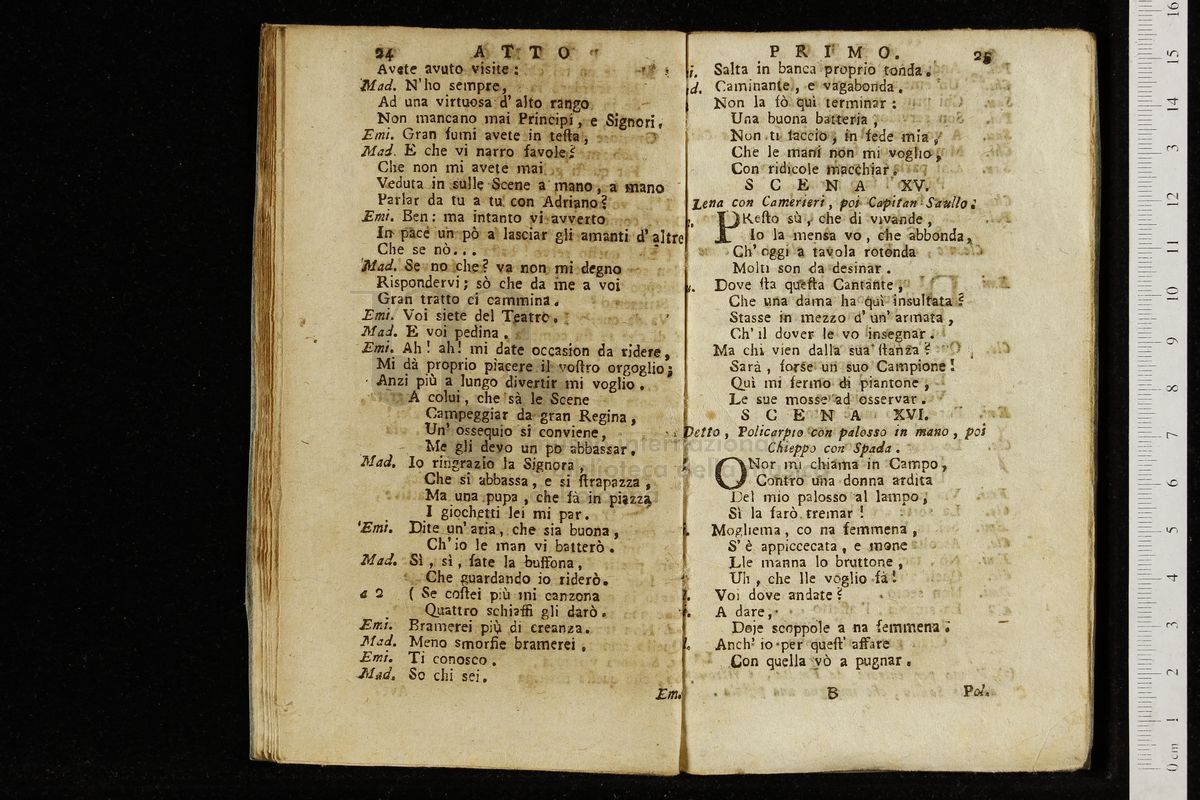 24 ATTO
Avete avuto visite :
Mad. N'ho sempre,
Ad una virtuosa d' alto rango
Non mancano mai Principi, e Signori.
Emi. Gran fumi avete in teſta,
Mad. E che vi narro favole?
Che non mi avete mai
Veduta in sulle Scene a mano, a mano
Parlar da tu a tu con Adriano?
Emi. Ben: ma intanto vi avverto
In pace un pò a lasciar gli amanti d' altre
Che se nò...
Mad. Se no che? va non mi degno
Rispondervi; sò che da me a voi
Gran tratto ci cammina.
Emi. Voi siete del Teatro.
Mad. E voi pedina.
Emi. Ah! ah! mi date occasion da ridere,
Mi dà proprio piacere il voſtro orgoglio;
Anzi più a lungo divertir mi voglio.
A colui, che sà le Scene
Campeggiar da gran Regina,
Un' ossequio si conviene,
Me gli devo un po abbassar.
Mad. Io ringrazio la Signora,
Che si abbassa, e si ſtrapazza,
Ma una pupa, che fà in piazza
I giochetti lei mi par.
Emi. Dite un' aria, che sia buona,
Ch' io le man vi batterò.
Mad. Sì, sì, fate la buffona,
Che guardando io riderò.
a 2 (Se coſtei più mi canzona
Quattro schiaffi gli darò.
Emi. Bramerei più di creanza.
Mad. Meno smorfie bramerei.
Emi. Ti conosco.
Mad. So chi sei.
Em.
PRIMO. 25
i. Salta in banca proprio tonda.
d. Caminante, e vagabonda.
Non la fò quì terminar:
Una buona batteria,
Non ti faccio, in fede mia,
Che le mani non mi voglio,
Con ridicole macchiar.
SCENA XV.
Lena con Camerieri, poi Capitan Saullo.
PReſto sù, che di vivande,
Io la mensa vo, che abbonda,
Ch' oggi a tavola rotonda
Molti son da desinar.
Dove ſta queſta Cantante,
Che una dama ha quì insultata?
Stasse in mezzo d' un' armata,
Ch' il dover le vo insegnar.
Ma chi vien dalla sua ſtanza?
Sarà, forse un suo Campione!
Quì mi fermo di piantone,
Le sue mosse ad osservar.
SCENA XVI.
Detto, Policarpio con palosso in mano, poi
Chieppo con Spada.
ONor mi chiama in Campo,
Contro una donna ardita
Del mio palosso al lampo,
Sì la farò tremar!
Mogliema, co na femmena,
S' è appiccecata, e mone
Lle manna lo bruttone,
Uh, che lle voglio fà!
Voi dove andate?
A dare,
Doje scoppole a na femmena.
Anch' io per queſt' affare
Con quella vò a pugnar.
B Pol.